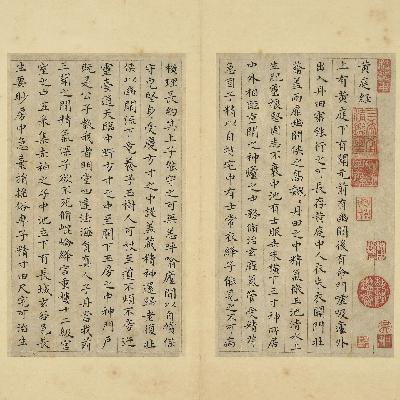 黃庭經
上有黃庭下有關元前有幽闕後有命門噓吸廬外
出入丹田審能行之可長存黃庭中人衣朱衣關門壯
籥蓋兩扉幽闕俠之高巍巍丹田之中精氣微玉池清水上
生肥靈根堅固志不衰中池有士服赤朱橫下三寸神所居
中外相距重閉之神廬之中務脩治玄雍氣管受精符
急固子精以自持宅中有士常衣絳子能見之可不病
橫理長尺約其上子能守之可無恙呼噏廬間以自償保
守完堅身受慶方寸之中謹蓋藏精神還歸老復壯
俠以幽闕流下竟養子玉樹可杖至道不煩不旁迕
靈臺通天臨中野方寸之中至關下玉房之中神門戶
既是公子教我者明堂四達法海員真人子丹當我前
三關之間精氣深子欲不死脩崑崙絳宮重樓十二級宮
室之中五采集赤神之子中池立下有長城玄谷邑長
生要眇房中急棄捐搖俗專子精寸田尺宅可治生